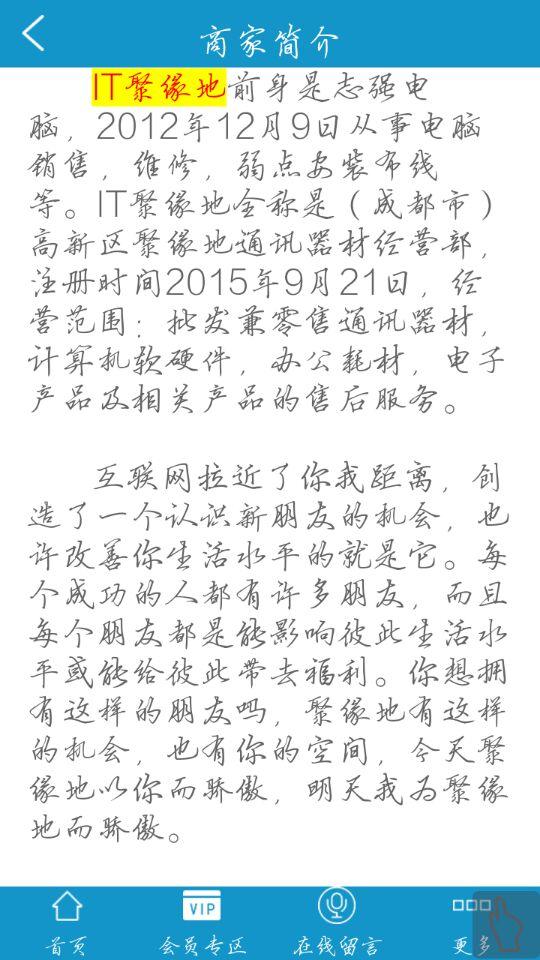 商家简介
IT聚缘地前身是志强电
脑，2012年12月9日从事电脑
销售，维修，弱点安装布线
等。IT聚缘地全称是（成都市）
高新区聚缘地通讯器材经营部，
注册时间2015年9月21日，经
营范围：批发兼零售通讯器材，
计算机软硬件，办公耗材，电子
产品及相关产品的售后服务。
互联网拉近了你我距离，创
造了一个认识新朋友的机会，也
许改善你生活水平的就是它。每
个成功的人都有许多朋友，而且
每个朋友都是能影响彼此生活水
平或能给彼此带去福利。你想拥
有这样的朋友吗，聚缘地有这样
的机会，也有你的空间，今天聚
缘地以你而骄傲，明天我为聚缘
地而骄傲。
VIP
首页 会员专区 在线留言 更多